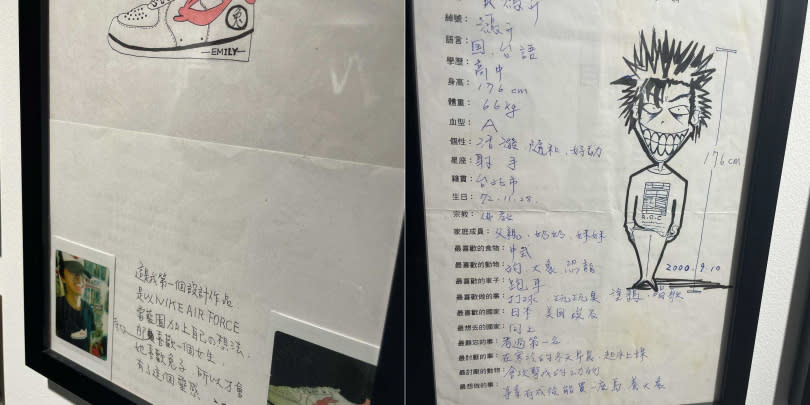 EMILY
這是我第一個設計作品
是以NIKE AIR FORCE
當藍圖加上自己的想法.
喜歡一個女生.
她喜歡兔子,所以才會
有了這個靈感.
綽號:
語言:國、台語
學歷:高中
身高:176 cm
體重:66kg
血型:A
個性:活潑 隨和、好動
星座:射手
籍貫:台北市
生日:72.11.28.
宗教:佛教
家庭成員:父親、奶奶、妹妹
最喜歡的食物:中式
最喜歡的動物:狗、大象、恐龍
最喜歡的車子:跑車
最喜歡做的事:打球、玩玩具 塗鴉、唱歌
最喜歡的國家:日本 美國
最想去的國家:同上
最難忘的事:考過第一名
最討厭的事:在寒冷的冬天早晨,起床上課
最討厭的動物:會攻擊我的動物
最想做的事:
176cm
R.O.C
2000.9.10